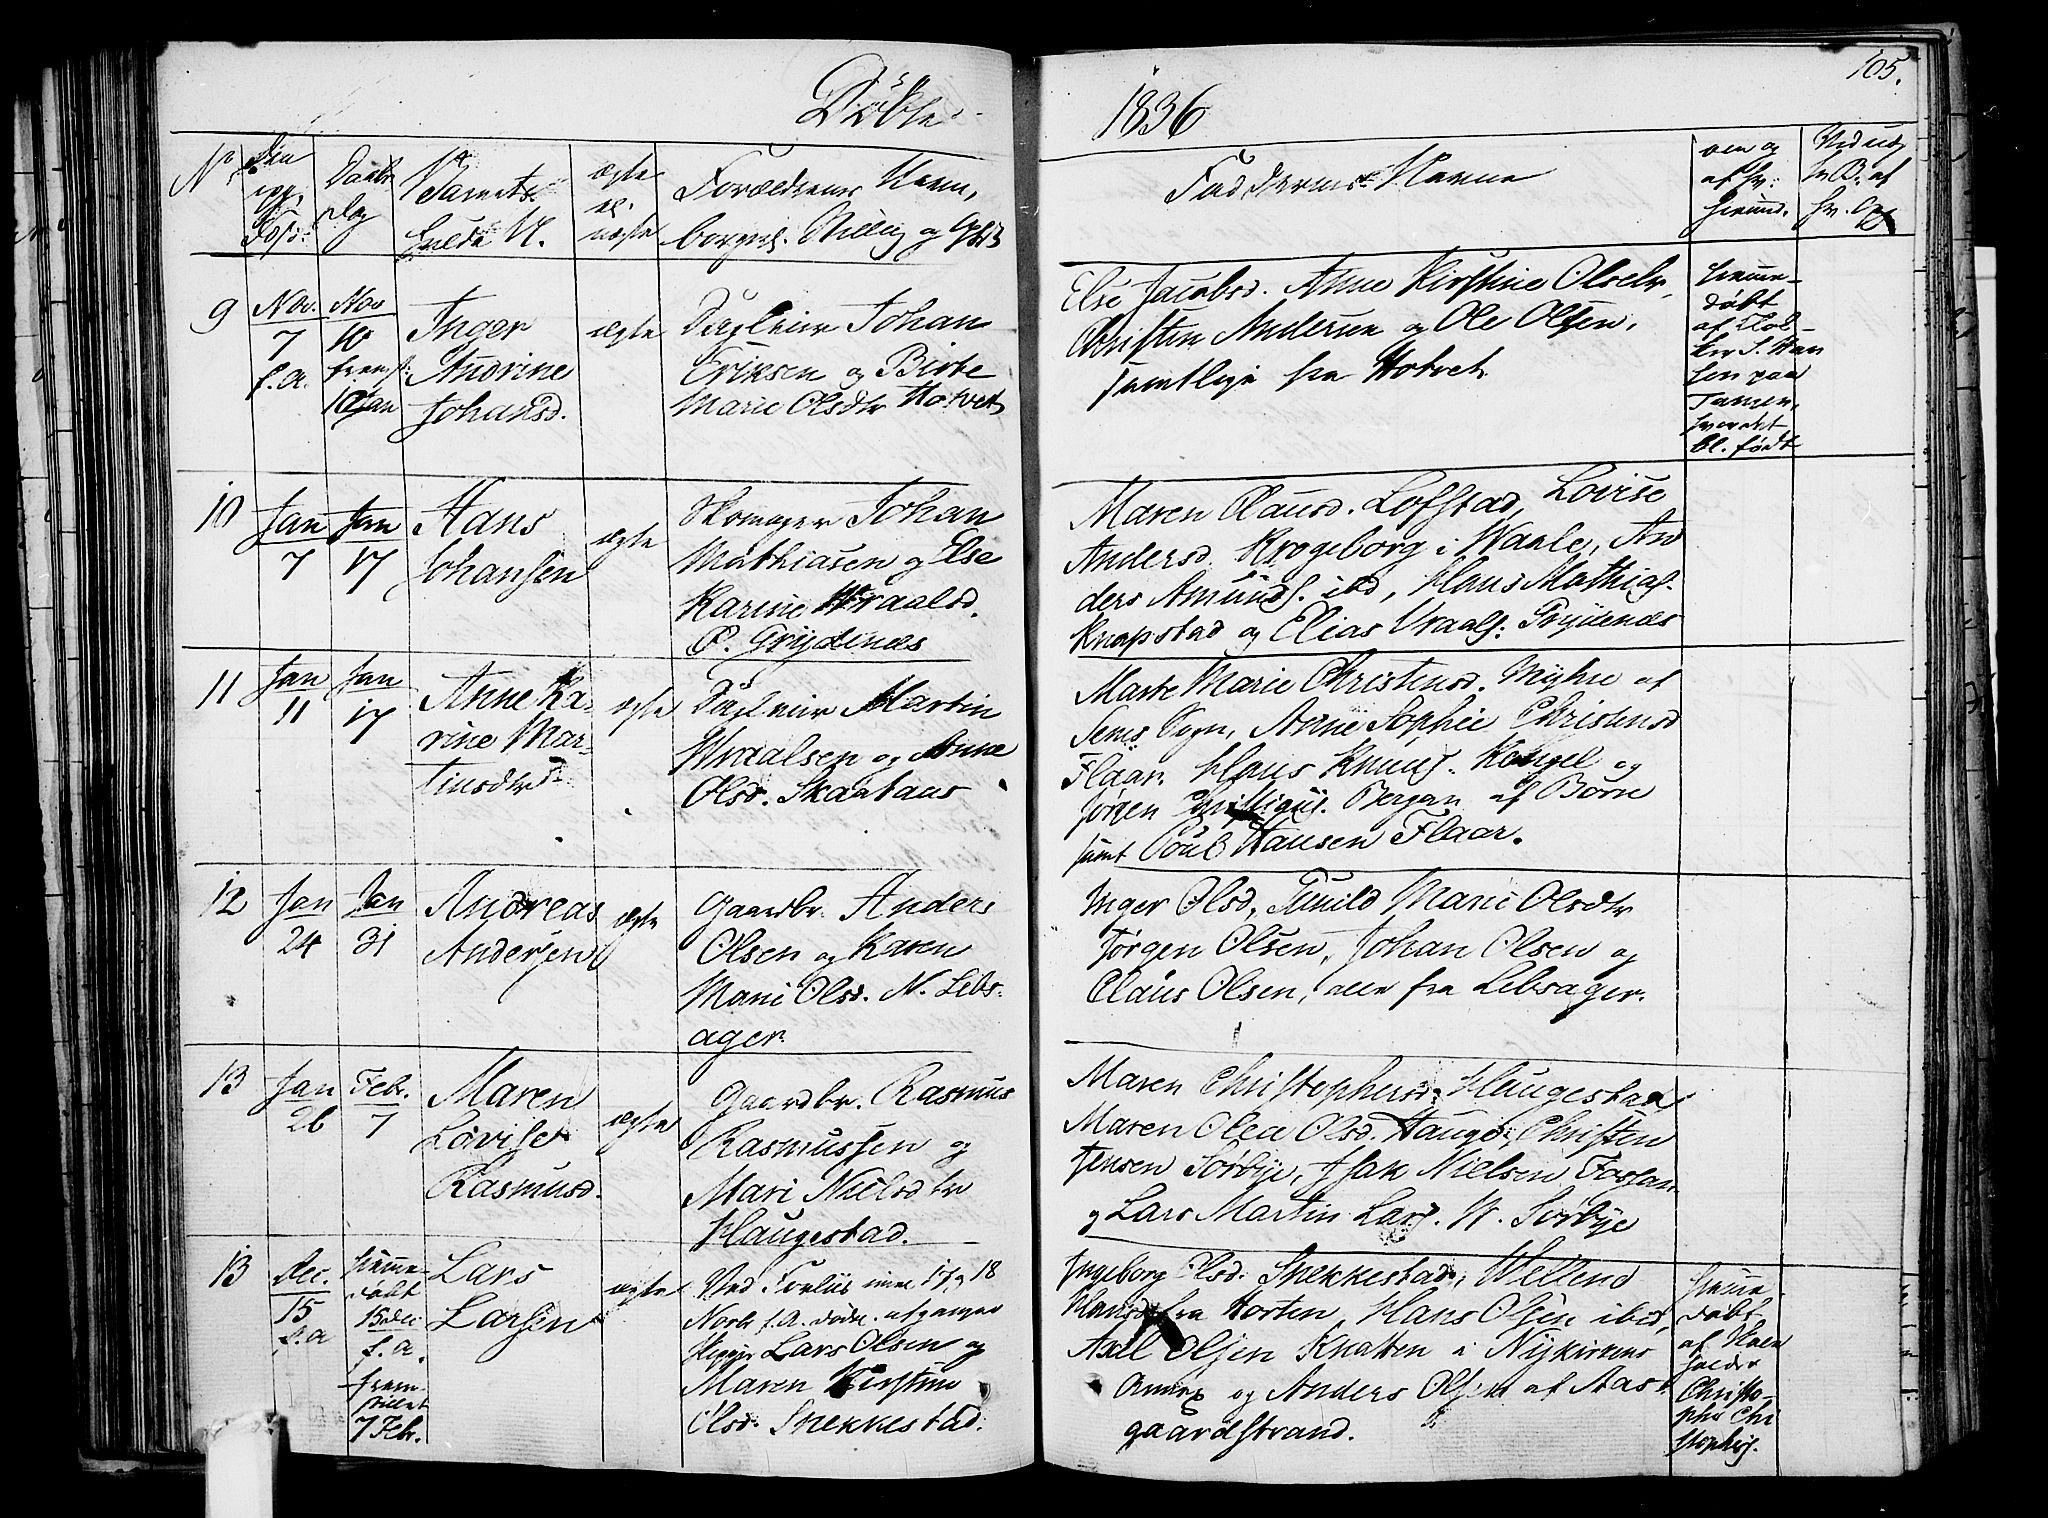 Döbte
1836
105.
No
Den
Daabs
Dag
Barnets
fulde N.
ægte
el.
uægte
Forældrenes Navn,
Faddernes Navne
om og
af hv:
9
Nov.
7
f.a.
Nov
10
10 Jan
Inger
Andrine
Johansd.
ægte
Johan
Eriksen og Birte
Marie Olsdtr Hotvet
Else Jacobsd. Anne Kirstine Olsdtr,
Christen Andersen og Ole Olsen,
samtlige fra Hotvet
hjemme-
døbt
af
bl. født
10
Jan
7
Jan
17
Hans
Johansen
ægte
Skomager Johan
Mathiasen og Else
Karine Wraalsd.
P. Grydenæs
Maren Clausd. Lofstad, Lovise
Andersd. Krogeborg i Waale, An
ders Amunds. ibd, Hans Mathias.
Knapstad og Elias Vraals: Grydenæs
11
Jan
11
Jan
17
Anne Ka-
rine Mar-
tinsdtr
ægte
Martin
Wraalsen og Anne
Olsd. Skaataas
Marte Marie Christensd. Myhre af
Sems Sogn, Anne Sophie Christensd
Flaar. Hans Knuds. Kongel og
Jörgen Bergan af Borre
samt Poul Hansen Flaar.
12
Jan
24
Jan
31
Andreas
Andersen
ægte
Gaardbr. Anders
Olsen og Karen
Marie Olsd. N. Lebs-
ager
Inger Olsd, Gunild Marie Olsdtr
Jörgen Olsen, Johan Olsen og
Claus Olsen, alle fra Lebsager.
13
Jan
26
Febr.
7
Maren
Lovise
Rasmusd.
ægte
Gaardbr. Rasmus
Rasmussen og
Mari Nielsdtr
Haugestad.
Maren Christophersd. Haugestad,
Maren Olea Olsd. Hauge, Christen
Jensen Sörbye, Isak Nielsen Fossan
og Lars Martin Lars. W. Sörbye
13
Dec.
15
f.a
hjemme-
døbt
15 dec
f.a.
frem-
stillet
7 Febr.
Lars
Larsen
ægte
17 og 18
Novb f.A. døde
Lars Olsen og
Maren Kirstine
Olsd. Snekkestad.
Ingeborg Olsd. Snekkestad,
fra Horten, Hans Olsen ibid,
Axel Olsen Knatten i Nykirkens
Annex og Anders Olsen af Aas-
gaardstrand.
hjemme-
döbt
af
Christo-
pher Chri
stophers.